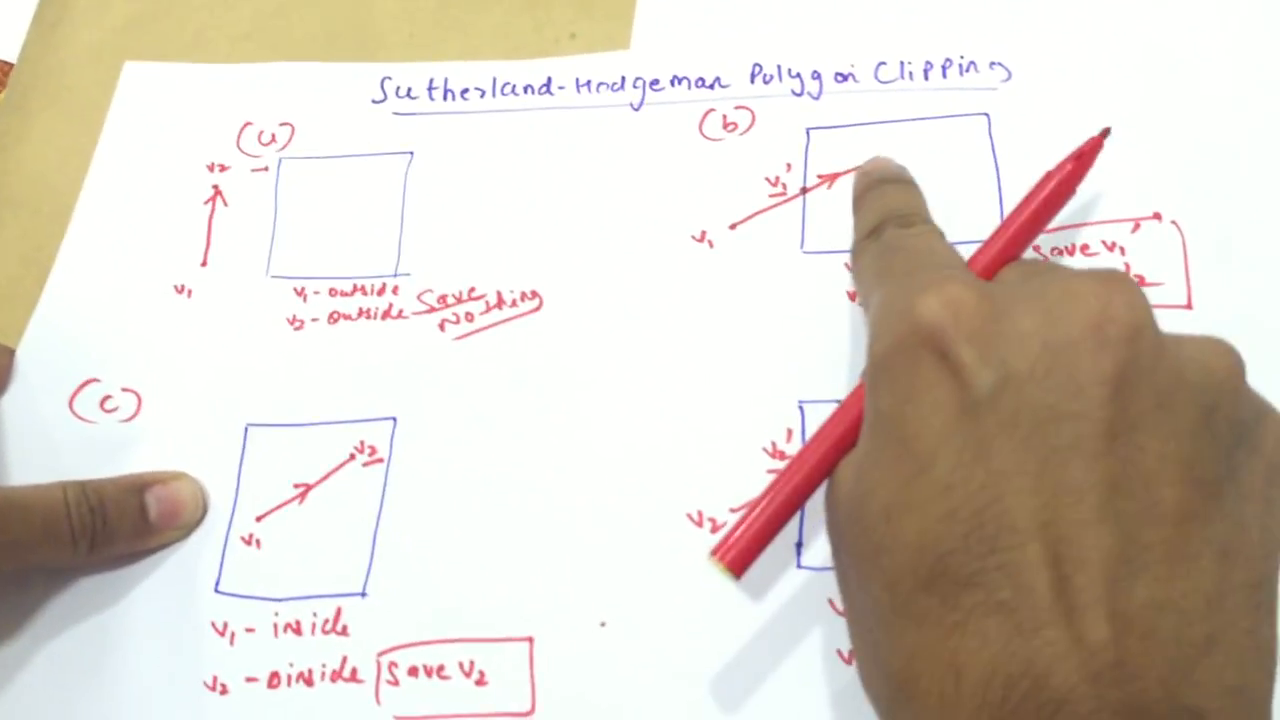 Sutherland-Hodgeman Polygon Clipping
(a)
v2
v1
v1 - outside
v2 - outside Save Nothing
(b)
v1'
v1
Save v1'
(c)
v2
v1
v1 - inside
v2 - oinside Save v2
v2'
v2